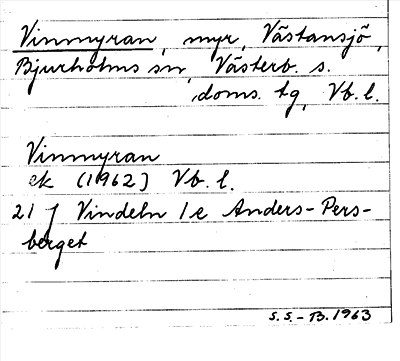 Vinmyran, myr, Västansjö,
Bjurholms sn, Västerb. s.
doms. tg, Vb. l.
Vinmyran
ek (1962) Vb. l.
21 J Vindeln 1e Anders-Pers-
berget
S.S.-B. 1963